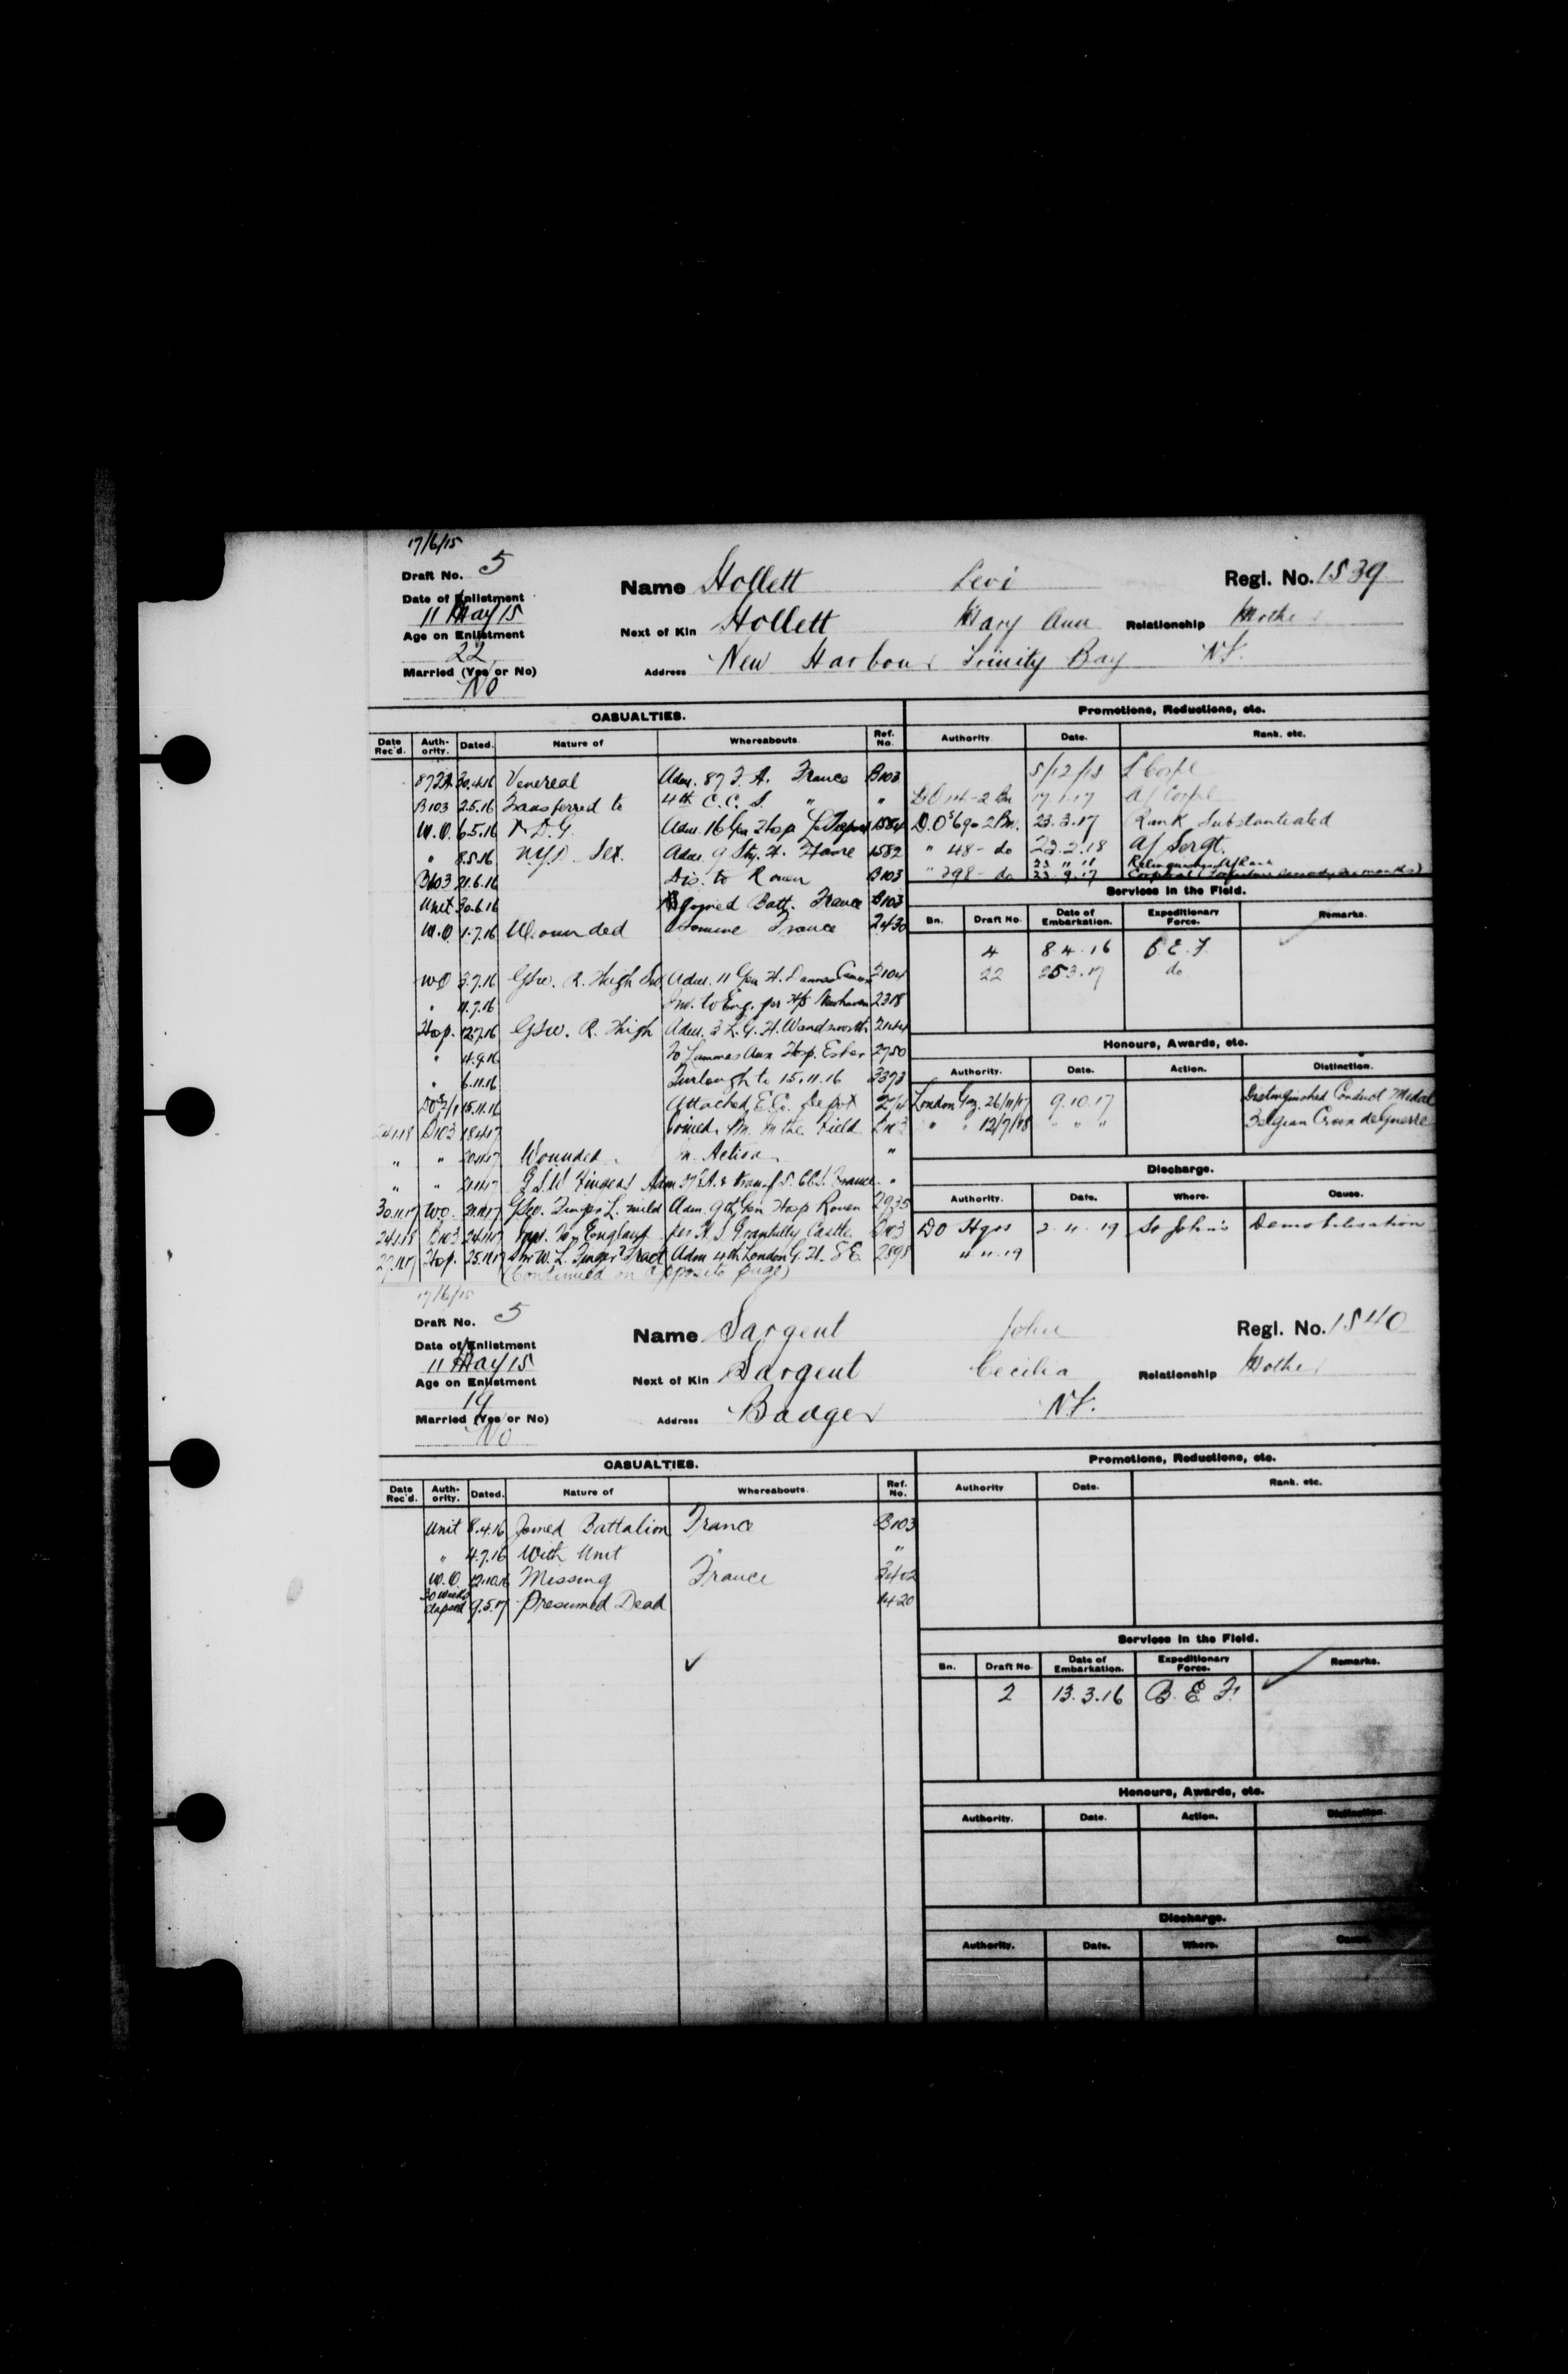 17/6/15
Draft No. 5
Name Hollett Levi Regl. No. 1539
Date of Enlistment
11 May 15
Next of Kin Hollett Mary Ann Relationship Mother
Age on Enlistment
22
Address New Harbour Trinity Bay N.F.
Married (Yes or No)
No
CASUALTIES.
Date Rec'd. Auth-ority. Dated. Nature of Whereabouts. Ref. No.
87 F.A. 30.4.16 Venereal Adm. 87 F. A. France B103
B103 2.5.16 Transferred to 4th C. C. S. " "
W.O. 6.5.16 V.D.G. Adm. 16 Gen Hosp 1584
" 8.5.16 N.Y.D. Sex. Adm. 9 Sty. H. Havre 1582
B103 21.6.16 Dis. to Rouen B103
Unit 30.6.16 Rejoined Batt. France B103
W.O. 1.7.16 Wounded Somme France 2430
WO 3.7.16 GSW. R. Thigh Adm. 11 Gen H. Dannes Camiers 2104
" 4.7.16 Inv. to Eng. per H/S Newhaven 2318
Hosp. 12.7.16 GSW. R. Thigh Adm. 3 L. G. H. Wandsworth 2144
" 4.9.16 To Lammas Aux Hosp. Esher 2750
" 6.11.16 Furlough to 15.11.16 3373
15.11.16 Attached E.C. Depot
24.1.18 B103 18.4.17 Joined Bn. In the Field B103
" " 20.11.17 Wounded In Action "
" " 21.11.17 G.S.W. Fingers Adm 37 F.A. & transf 5. CCS. France "
30.11.17 WO. 21.11.17 GSW. Finger L. mild Adm. 9th Gen Hosp Rouen 2935
24.1.18 B103 24.11.17 Trans. To England per H. S. Grantully Castle B103
27.11.17 Hosp. 25.11.17 W. L. Finger Fract Adm 4th London G. H. S E. 2898
(Continued on opposite page)
Promotions, Reductions, etc.
Authority. Date. Rank. etc.
5/12/15 L Corpl
D O 14-2 Bn 17.1.17 A/ Corpl
D.O's 69-2 Bn. 23.3.17 Rank Substantiated
" 48- do 22.2.18 A/ Sergt.
23 " 18 Relinquishes A/ Rank
" 298- do 23.9.17
Services in the Field.
Bn. Draft No. Date of Embarkation. Expeditionary Force. Remarks.
4 8.4.16 B.E.F.
22 25.3.17 do
Honours, Awards, etc.
Authority. Date. Action. Distinction.
London Gaz. 26/11/17 9.10.17 Distinguished Conduct Medal
" " 12/7/18 " " " Belgian Croix de Guerre
Discharge.
Authority. Date. Where. Cause.
DO Hqrs 2.4.19 St John's Demobilisation
" 4.19
17/6/15
Draft No. 5
Name Sargent John Regl. No. 1540
Date of Enlistment
11 May 15
Next of Kin Sargent Cecilia Relationship Mother
Age on Enlistment
19
Address Badger N.F.
Married (Yes or No)
No
CASUALTIES.
Date Rec'd. Auth-ority. Dated. Nature of Whereabouts. Ref. No.
Unit 8.4.16 Joined Battalion France B103
" 4.7.16 With Unit " "
W.O. 12.10.16 Missing France 3402
30 weeks elapsed 9.5.17 Presumed Dead 1420
Promotions, Reductions, etc.
Authority Date. Rank. etc.
Services in the Field.
Bn. Draft No. Date of Embarkation. Expeditionary Force. Remarks.
2 13.3.16 B. E. F.
Honours, Awards, etc.
Authority. Date. Action. Distinction.
Discharge.
Authority. Date. Where. Cause.